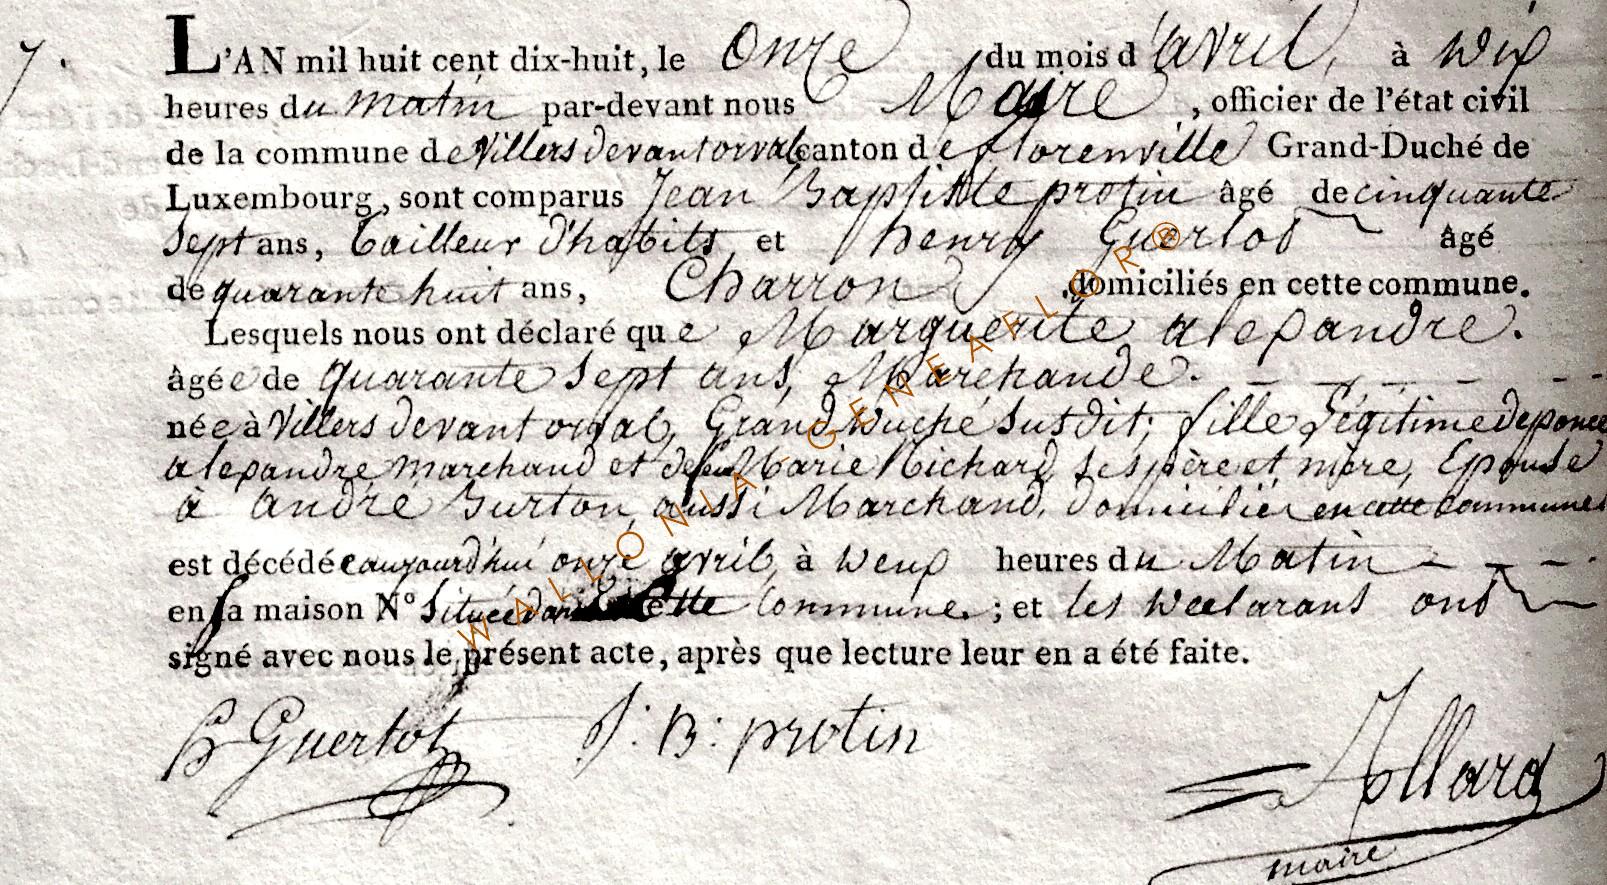 7.
L'AN mil huit cent dix-huit, le onze du mois d'avril, à dix
heures du matin par-devant nous Maire, officier de l'état civil
de la commune de Villers devant orval canton de florenville Grand-Duché de
Luxembourg, sont comparus Jean Baptiste protin âgé de cinquante
sept ans, tailleur d'habits et henry Guerlot âgé
de quarante huit ans, Charron domiciliés en cette commune.
Lesquels nous ont déclaré que Marguerite alexandre.
âgée de quarante sept ans, Marchande.
née à Villers devant orval, Grand Duché susdit, fille légitime de ponce
alexandre marchand et de feu Marie Michard, ses père et mère, Epouse
à andré Burton, aussi Marchand, domiciliés en cette commune
est décédée aujourd'hui onze avril, à deux heures du Matin
en la maison N° située dans cette Commune. ; et les declarans ont
signé avec nous le présent acte, après que lecture leur en a été faite.
h Guerlot J: B: protin Allard
maire
WALLONIA-GENEAFLOR®